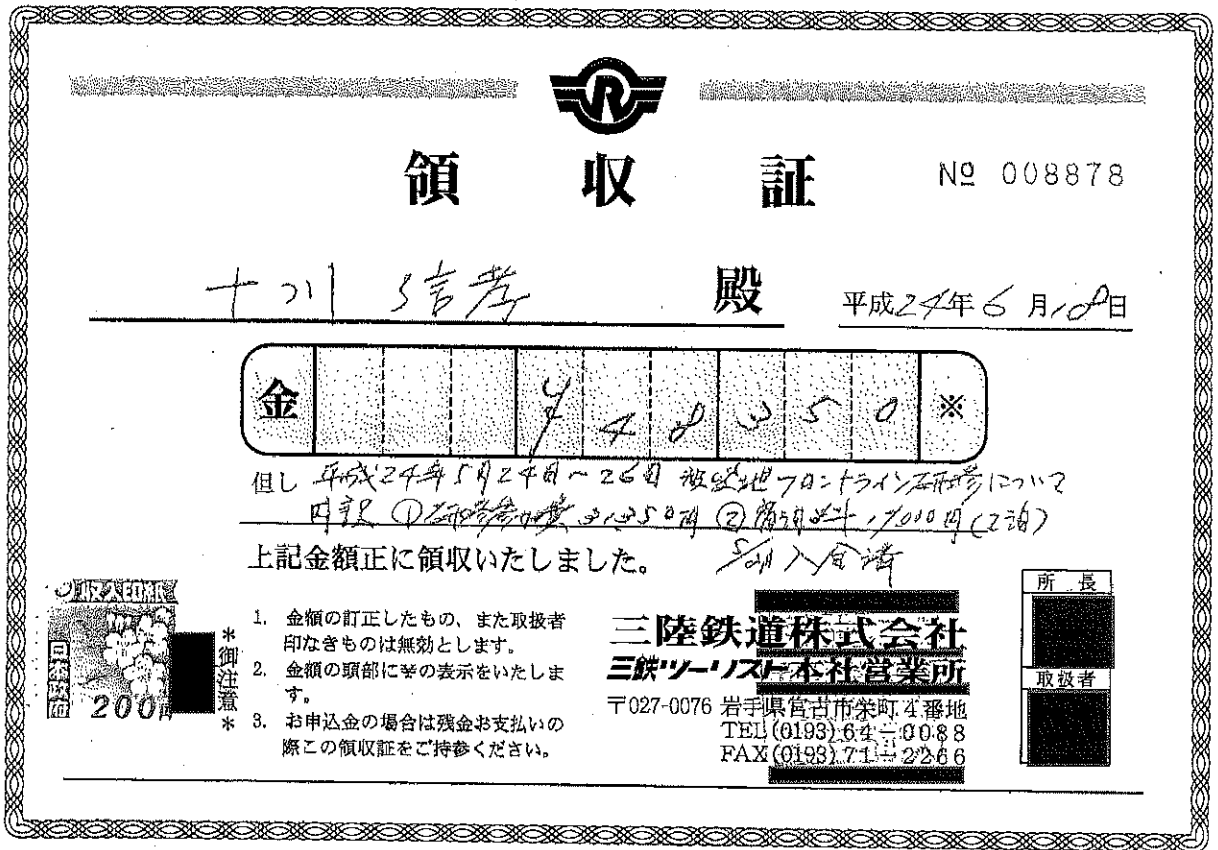 R
領収証
№ 008878
十川 信孝 殿
平成24年6月18日
金 ¥48350 ※
但し 平成24年5月24日~26日 被災地フロントライン研修について
内訳 ①研修参加費 31,350円 ② 17,000円(2泊)
上記金額正に領収いたしました。
入金済
収入印紙
日本政府
200円
*御注意*
1. 金額の訂正したもの、また取扱者
印なきものは無効とします。
2. 金額の頭部に¥の表示をいたしま
す。
3. お申込金の場合は残金お支払いの
際この領収証をご持参ください。
三陸鉄道株式会社
三鉄ツーリスト本社営業所
〒027-0076 岩手県宮古市栄町4番地
TEL(0193)64-0088
FAX(0193)71-2266
所長
取扱者